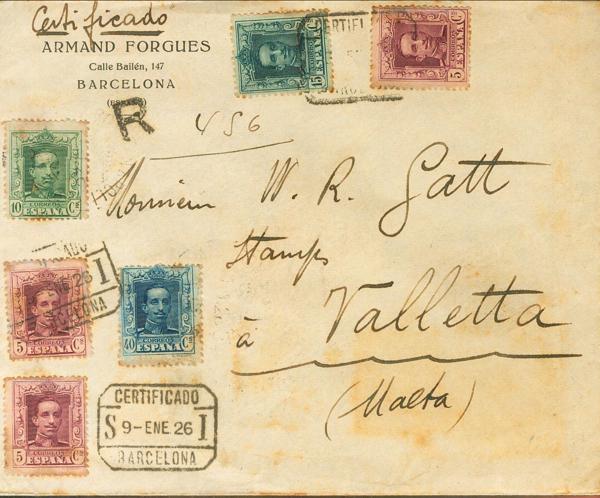 Certificado
ARMAND FORGUES
Calle Bailén, 147
BARCELONA
R
456
15 Cs
CERTIFI
5 Cs
CORREOS
10 Cs
ESPAÑA
Monsieur W. R. Gatt
Stamps
à Valletta
(Malta)
ENE 26 I
BARCELONA
CORREOS
5 Cs
ESPAÑA
CORREOS
40 Cs
ESPAÑA
CORREOS
5 Cs
ESPAÑA
CERTIFICADO
S 9-ENE 26 I
BARCELONA